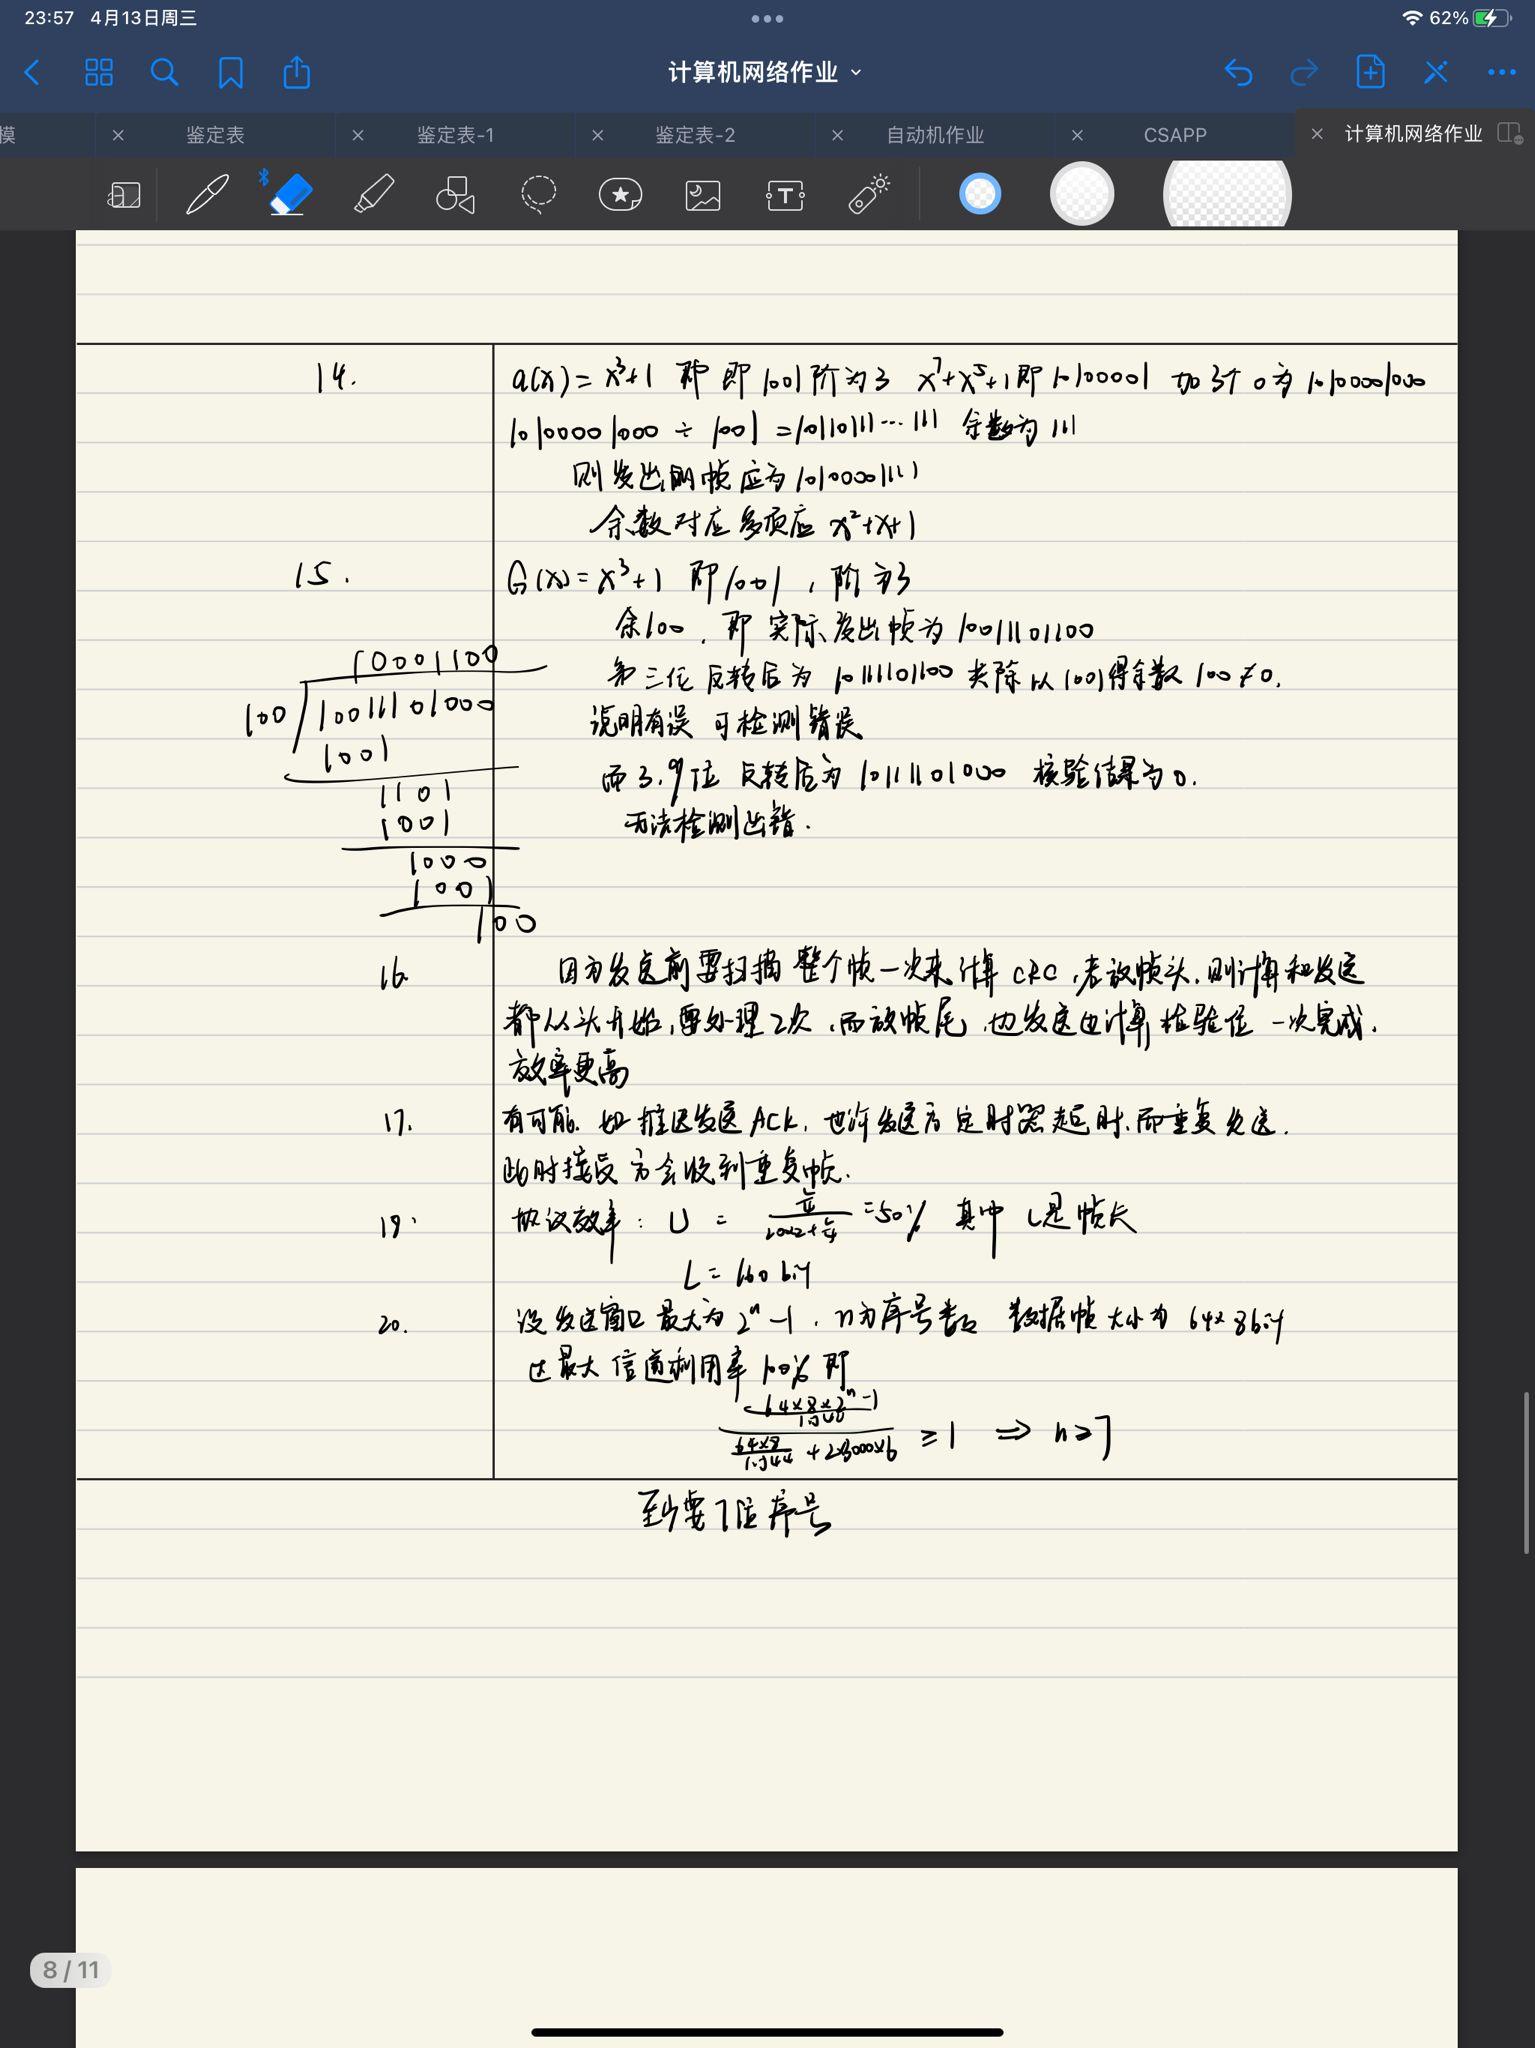 23:57 4月13日周三
62%
计算机网络作业
模
鉴定表
鉴定表-1
鉴定表-2
自动机作业
CSAPP
计算机网络作业
14. G(x)=x³+1 即 即1001阶为3 x⁷+x⁵+1即10100001 加3个0为10100001000
10100001000÷1001=10110111…111 余数为111
则发出的帧应为10100001111
余数对应多项应x²+x+1
15. G(x)=x³+1 即1001,阶为3
余100,即实际发出帧为10011101100
第三位反转后为10111101100 去除以1001得余数100≠0.
说明有误 可检测错误
而3.9位反转后为10111101000 核验结果为0.
无法检测出错.
10001100
100
10011101000
1001
1101
1001
1000
1001
100
16. 因为发送前要扫描整个帧一次来计算CRC,若放帧头,则计算和发送
都从头开始,要处理2次,而放帧尾,边发送边计算检验位一次完成,
效率更高
17. 有可能.如推迟发送ACK,也许发送方定时器超时,而重复发送.
此时接受方会收到重复帧.
19. 协议效率:U = =50% 其中L是帧长
L=160bit
20. 设发送窗口最大为2ⁿ-1,n为序号数 数据帧大小为64×8bit
达最大信道利用率100%即
64×8×2ⁿ-1
64×8
+2×3000×6 ≥1 ⇒ n≥7
至少要7位序号
8/11